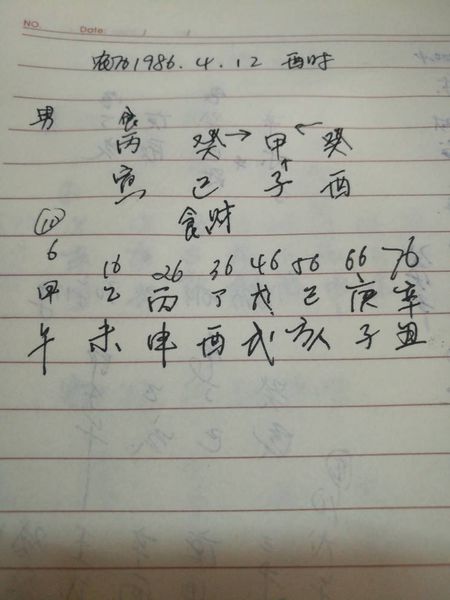 NO.
Date: / /
农历1986.4.12 酉时
男 食
丙 癸→甲←癸
寅 巳 子 酉
食财
⑩
6 16 26 36 46 56 66 76
甲 乙 丙 丁 戊 己 庚 辛
午 未 申 酉 戌 亥 子 丑